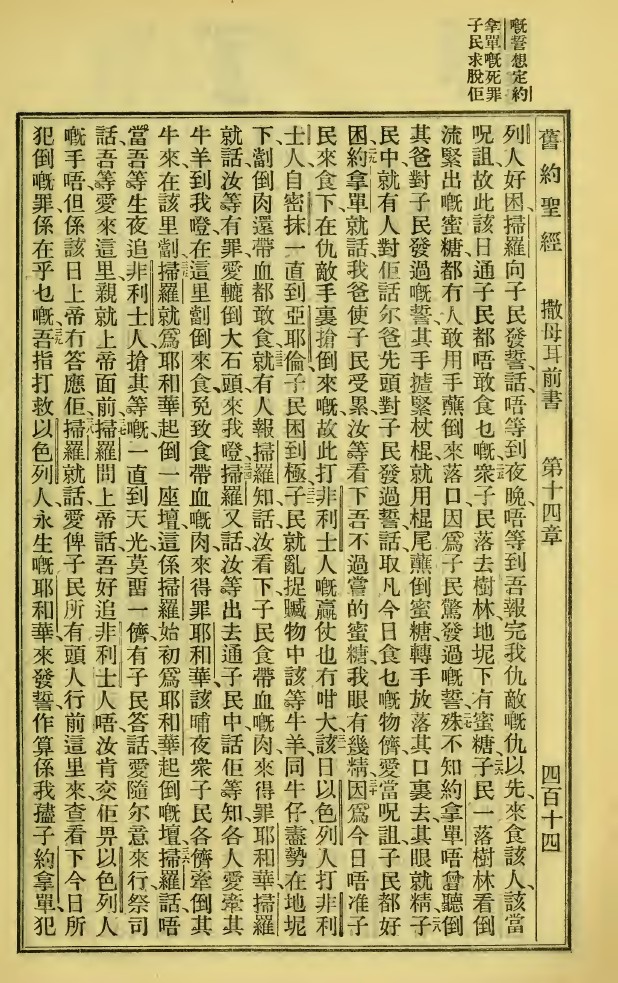 嘅誓想定約
拿單嘅死罪
子民求脫佢
舊約聖經 撒母耳前書 第十四章 四百十四
列人好困掃羅向子民發誓話唔等到夜晚唔等到吾報完我仇敵嘅仇以先來食該人該當
呪詛故此該日通子民都唔敢食乜嘅衆子民落去樹林地坭下有蜜糖子民一落樹林看倒
流緊出嘅蜜糖都冇人敢用手蘸倒來落口因爲子民驚發過嘅誓殊不知約拿單唔曾聽倒
其爸對子民發過嘅誓其手揸緊杖棍就用棍尾蘸倒蜜糖轉手放落其口裏去其眼就精子
民中就有人對佢話尔爸先頭對子民發過誓話取凡今日食乜嘅物儕愛當呪詛子民都好
困約拿單就話我爸使子民受累汝等看下吾不過嘗的蜜糖我眼有幾精因爲今日唔准子
民來食下在仇敵手裏搶倒來嘅故此打非利士人嘅贏仗也冇咁大該日以色列人打非利
士人自密抹一直到亞耶倫子民困到極子民就亂捉贓物中該等牛羊同牛仔盡勢在地坭
下劏倒肉還帶血都敢食就有人報掃羅知話汝看下子民食帶血嘅肉來得罪耶和華掃羅
就話汝等有罪愛轆倒大石頭來我嶝掃羅又話汝等出去通子民中話佢等知各人愛牽其
牛羊到我嶝在這里劏倒來食免致食帶血嘅肉來得罪耶和華該晡夜衆子民各儕牽倒其
牛來在該里劏掃羅就爲耶和華起倒一座壇這係掃羅始初爲耶和華起倒嘅壇掃羅話唔
當吾等生夜追非利士人搶其等嘅一直到天光莫留一儕有子民答話愛隨尔意來行祭司
話吾等愛來這里親就上帝面前掃羅問上帝話吾好追非利士人唔汝肯交佢畀以色列人
嘅手唔但係該日上帝冇答應佢掃羅就話愛俾子民所有頭人行前這里來查看下今日所
犯倒嘅罪係在乎乜嘅吾指打救以色列人永生嘅耶和華來發誓作算係我孻子約拿單犯